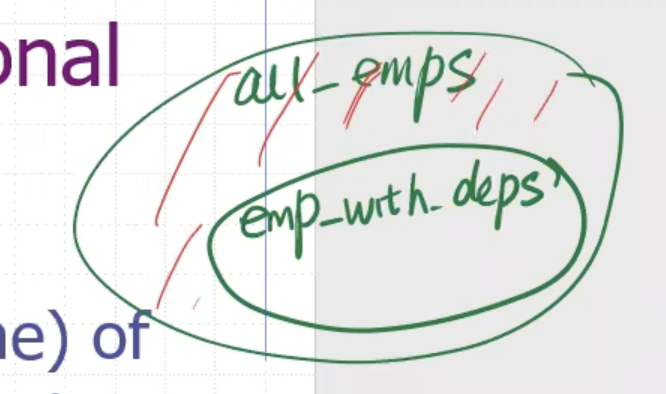 onal
all_emps
emp_with_deps
ne) of